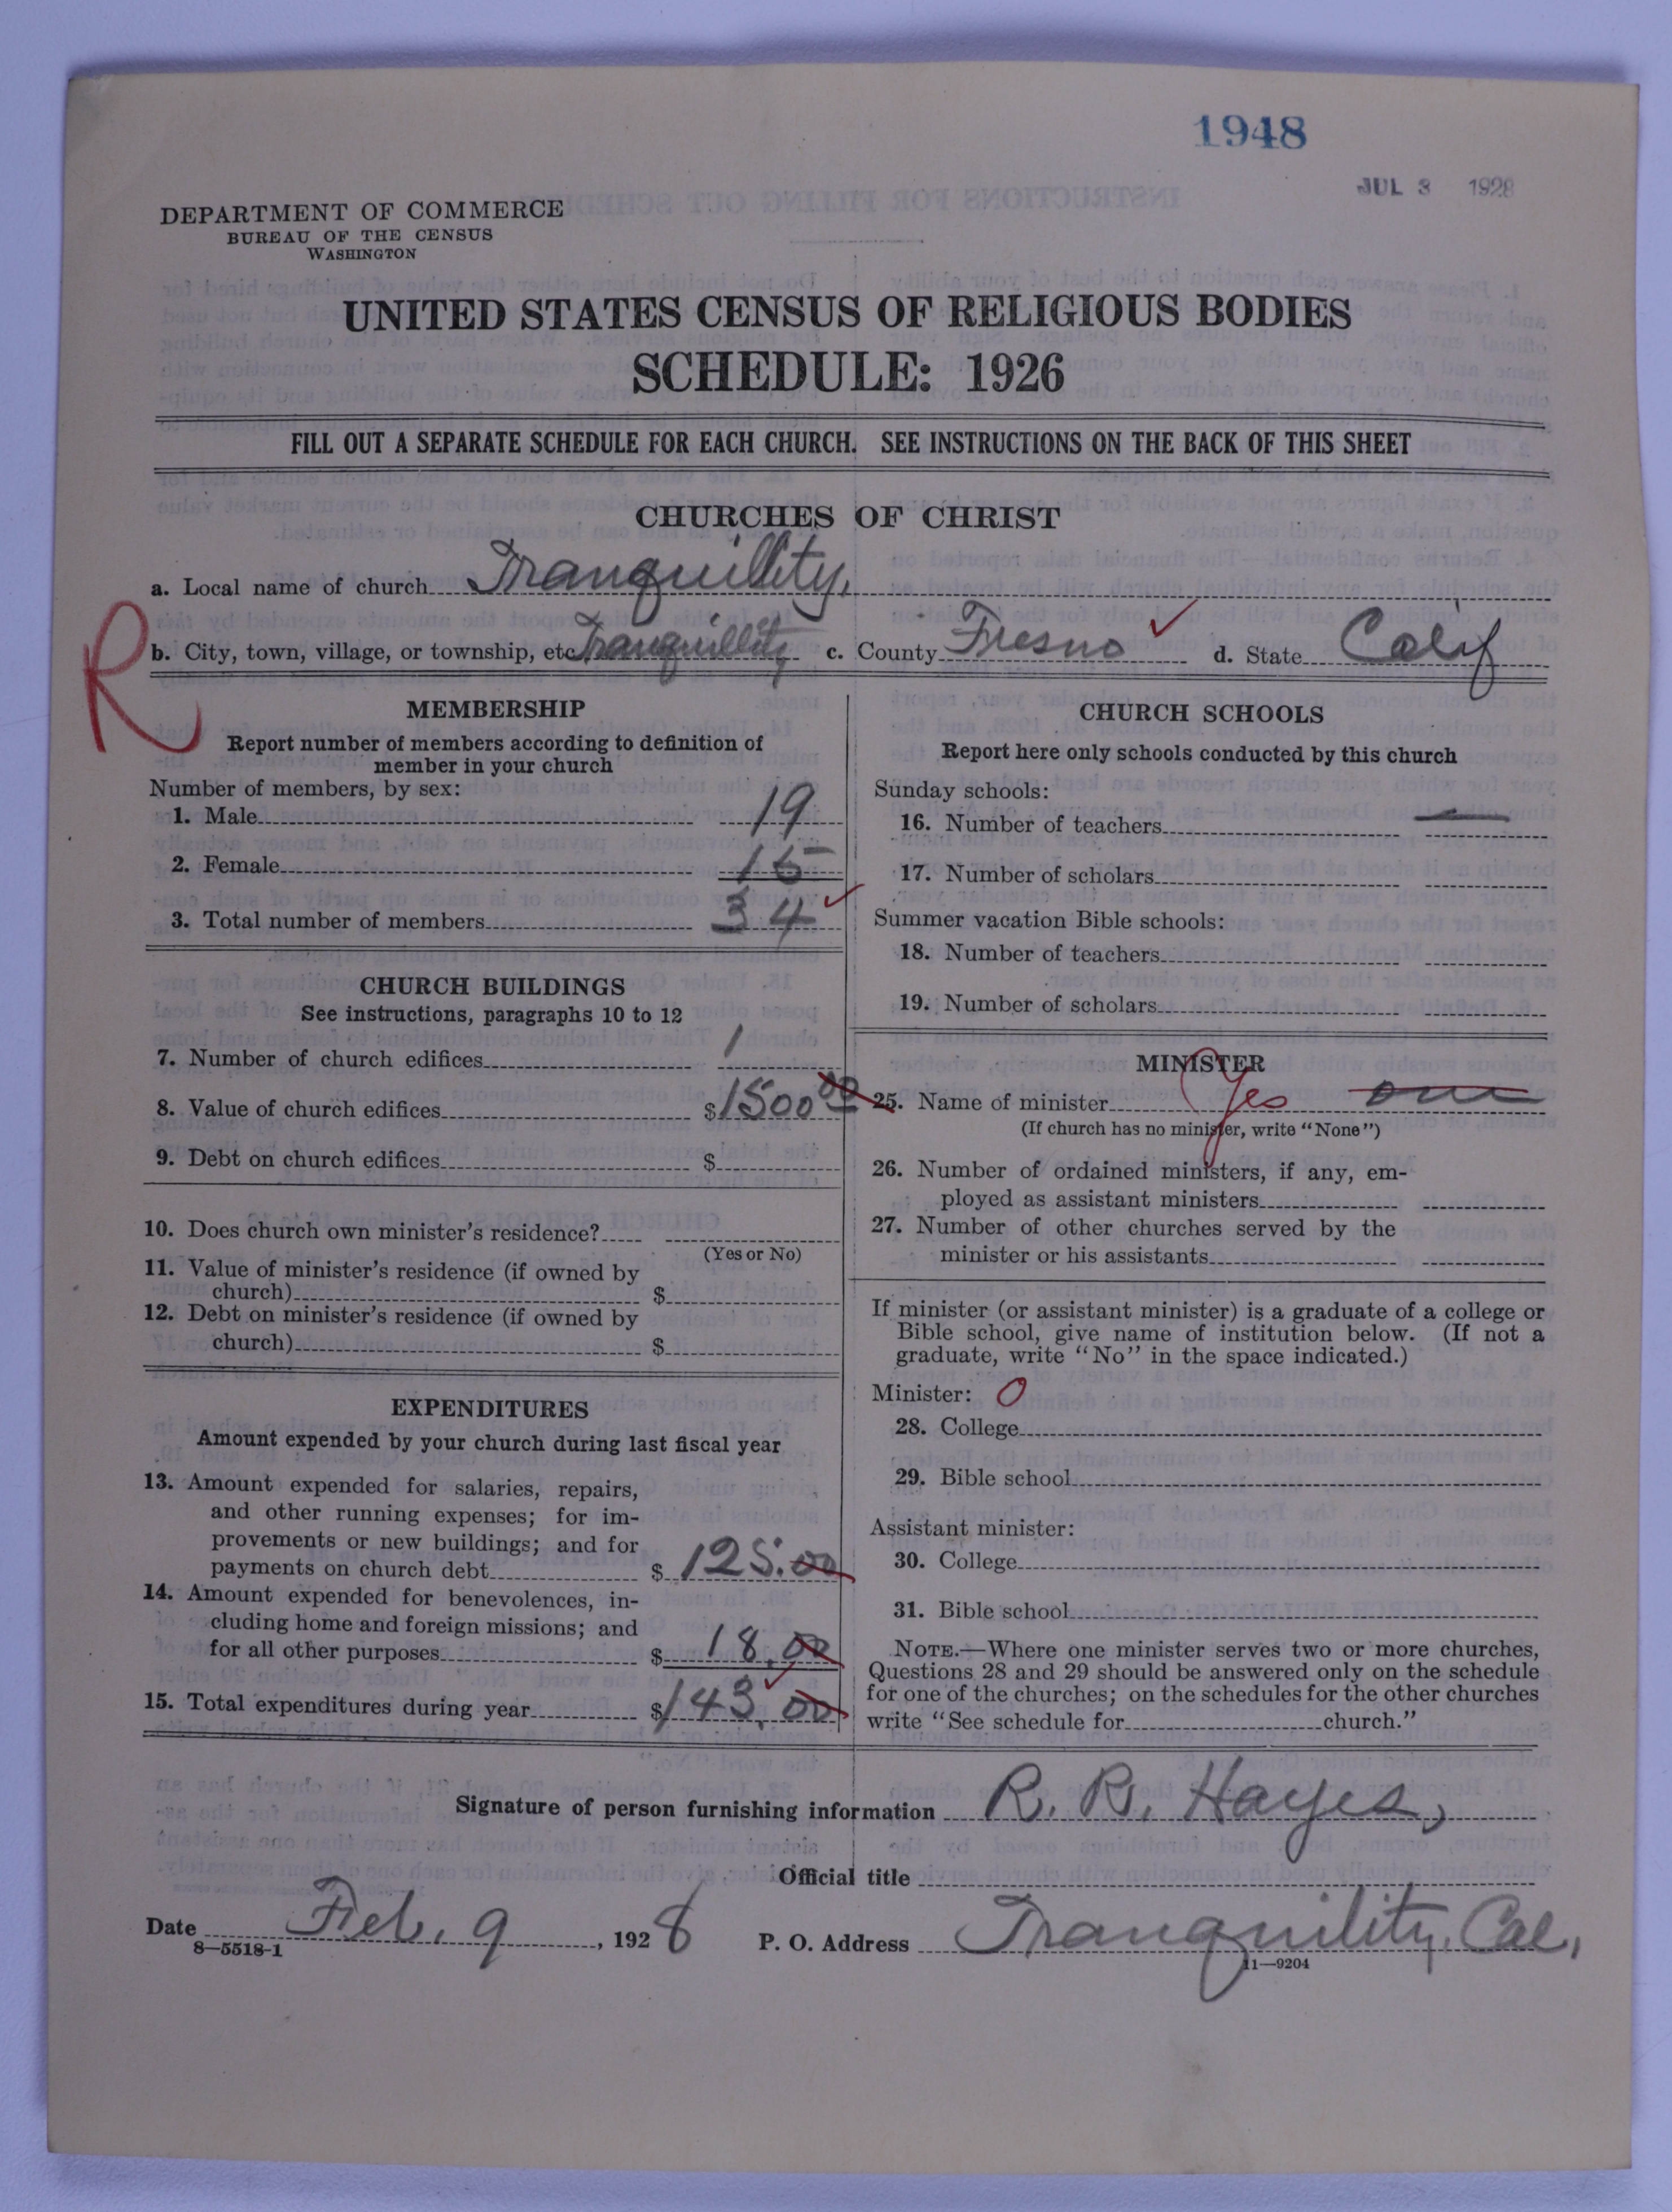 1948
JUL 3 1928
DEPARTMENT OF COMMERCE
BUREAU OF THE CENSUS
WASHINGTON
UNITED STATES CENSUS OF RELIGIOUS BODIES
SCHEDULE: 1926
FILL OUT A SEPARATE SCHEDULE FOR EACH CHURCH. SEE INSTRUCTIONS ON THE BACK OF THIS SHEET
CHURCHES OF CHRIST
a. Local name of church Tranquillity,
R
b. City, town, village, or township, etc. Tranquillity c. County Fresno ✓ d. State Calif
MEMBERSHIP
Report number of members according to definition of
member in your church
Number of members, by sex:
1. Male 19
2. Female 15
3. Total number of members 34 ✓
CHURCH BUILDINGS
See instructions, paragraphs 10 to 12
7. Number of church edifices 1
8. Value of church edifices $1500 00
9. Debt on church edifices $
10. Does church own minister's residence?
(Yes or No)
11. Value of minister's residence (if owned by
church) $
12. Debt on minister's residence (if owned by
church) $
EXPENDITURES
Amount expended by your church during last fiscal year
13. Amount expended for salaries, repairs,
and other running expenses; for im-
provements or new buildings; and for
payments on church debt $ 125.00
14. Amount expended for benevolences, in-
cluding home and foreign missions; and
for all other purposes $ 18.00
15. Total expenditures during year $143.00 ✓
CHURCH SCHOOLS
Report here only schools conducted by this church
Sunday schools:
16. Number of teachers —
17. Number of scholars
Summer vacation Bible schools:
18. Number of teachers
19. Number of scholars
MINISTER
25. Name of minister (Yes one
(If church has no minister, write "None")
26. Number of ordained ministers, if any, em-
ployed as assistant ministers
27. Number of other churches served by the
minister or his assistants
If minister (or assistant minister) is a graduate of a college or
Bible school, give name of institution below. (If not a
graduate, write "No" in the space indicated.)
Minister: O
28. College
29. Bible school
Assistant minister:
30. College
31. Bible school
NOTE.—Where one minister serves two or more churches,
Questions 28 and 29 should be answered only on the schedule
for one of the churches; on the schedules for the other churches
write "See schedule for church."
Signature of person furnishing information R. R. Hayes,
Official title
Date Feb. 9, 1928 P. O. Address Tranquility, Cal,
8—5518-1
11—9204